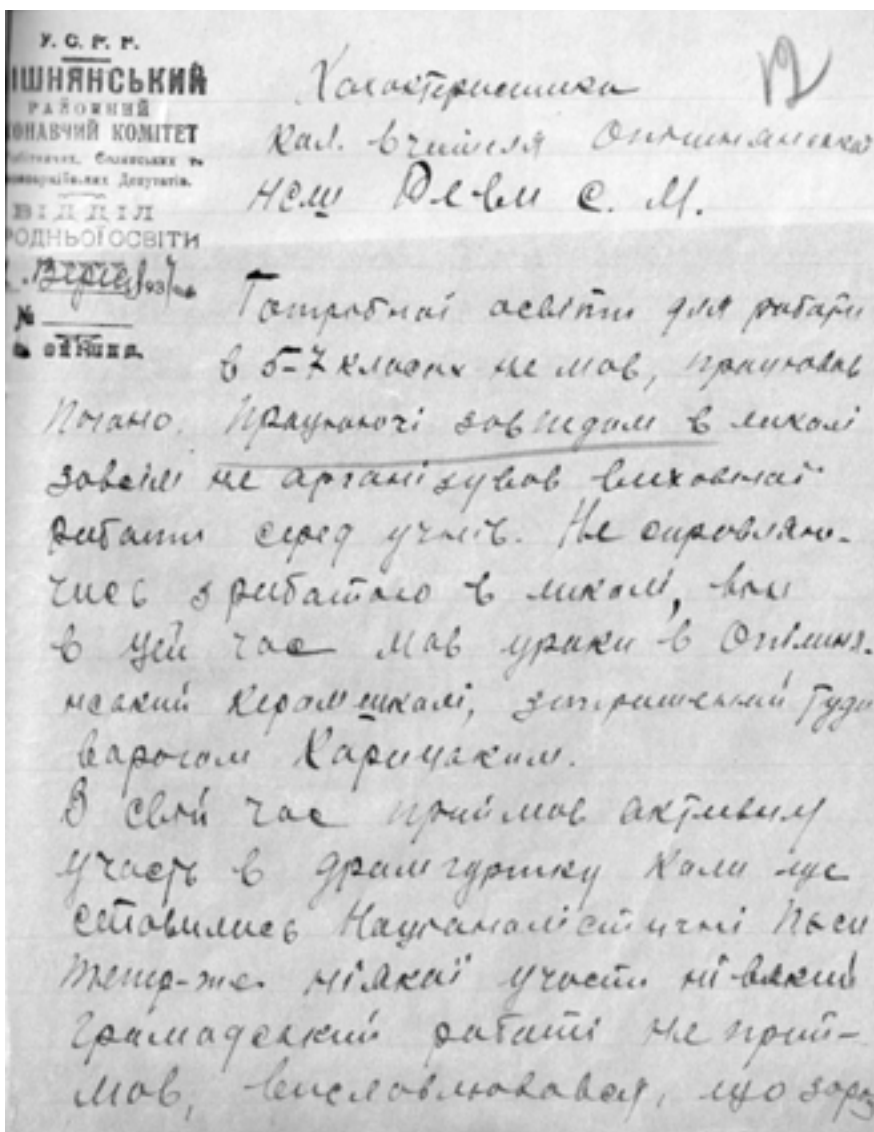 У. С. Р. Р.
ІШНЯНСЬКИЙ
РАЙОННИЙ
ОНАВЧИЙ КОМІТЕТ
Селянських та
Депутатів.
ВІДДІЛ
РОДНЬОЇ ОСВІТИ
193
№
Характеристика
12
кол. вчителя Опішнянської
НСШ Реви С. М.
Потробної освіти для работи
в 5-7 класах не мав, працював
погано. Працюючі завпедом в школі
зовсім не організував виховної
работи серед учнів. Не справляю-
чись з работою в школі, він
в цей час мав уроки в Опішня-
нський керамшколі, запрошений туди
варогом Харицьким.
В свій час приймав активну
участь в драмгуртку коли
ставились націоналістичні пєси
тепер-же ніякої участи ні в який
грамадський работі не прий-
мав, висловлювався, що зараз